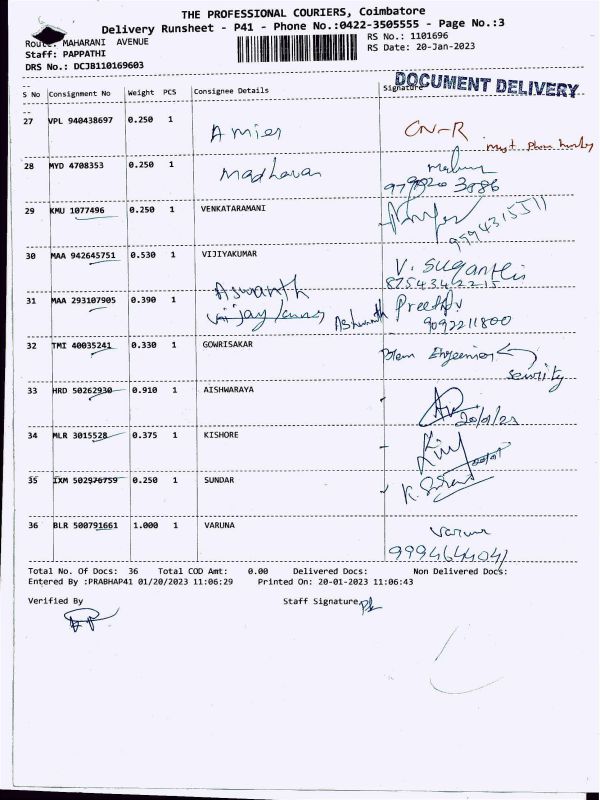 THE PROFESSIONAL COURIERS, Coimbatore
Delivery Runsheet - P41 - Phone No.:0422-3505555 - Page No.:3
Route: MAHARANI AVENUE
RS No.: 1101696
Staff: PAPPATHI
RS Date: 20-Jan-2023
DRS No.: DCJB110169603
DOCUMENT DELIVERY
S No Consignment No Weight PCS Consignee Details Signature
27 VPL 940438697 0.250 1 CN-R
28 MYD 4708353 0.250 1 Madhavan
29 KMU 1077496 0.250 1 VENKATARAMANI
30 MAA 942645751 0.530 1 VIJIYAKUMAR V. Suganthi
8754342215
31 MAA 293107905 0.390 1 Aswanth
Ashwanth
9092211800
32 TMI 40035241 0.330 1 GOWRISAKAR
Security
33 HRD 50262930 0.910 1 AISHWARAYA
20/01/23
34 MLR 3015528 0.375 1 KISHORE
35 IXM 502976759 0.250 1 SUNDAR
36 BLR 500791661 1.000 1 VARUNA Varuna
9994644041
Total No. Of Docs: 36 Total COD Amt: 0.00 Delivered Docs: Non Delivered Docs:
Entered By :PRABHAP41 01/20/2023 11:06:29 Printed On: 20-01-2023 11:06:43
Verified By Staff Signature